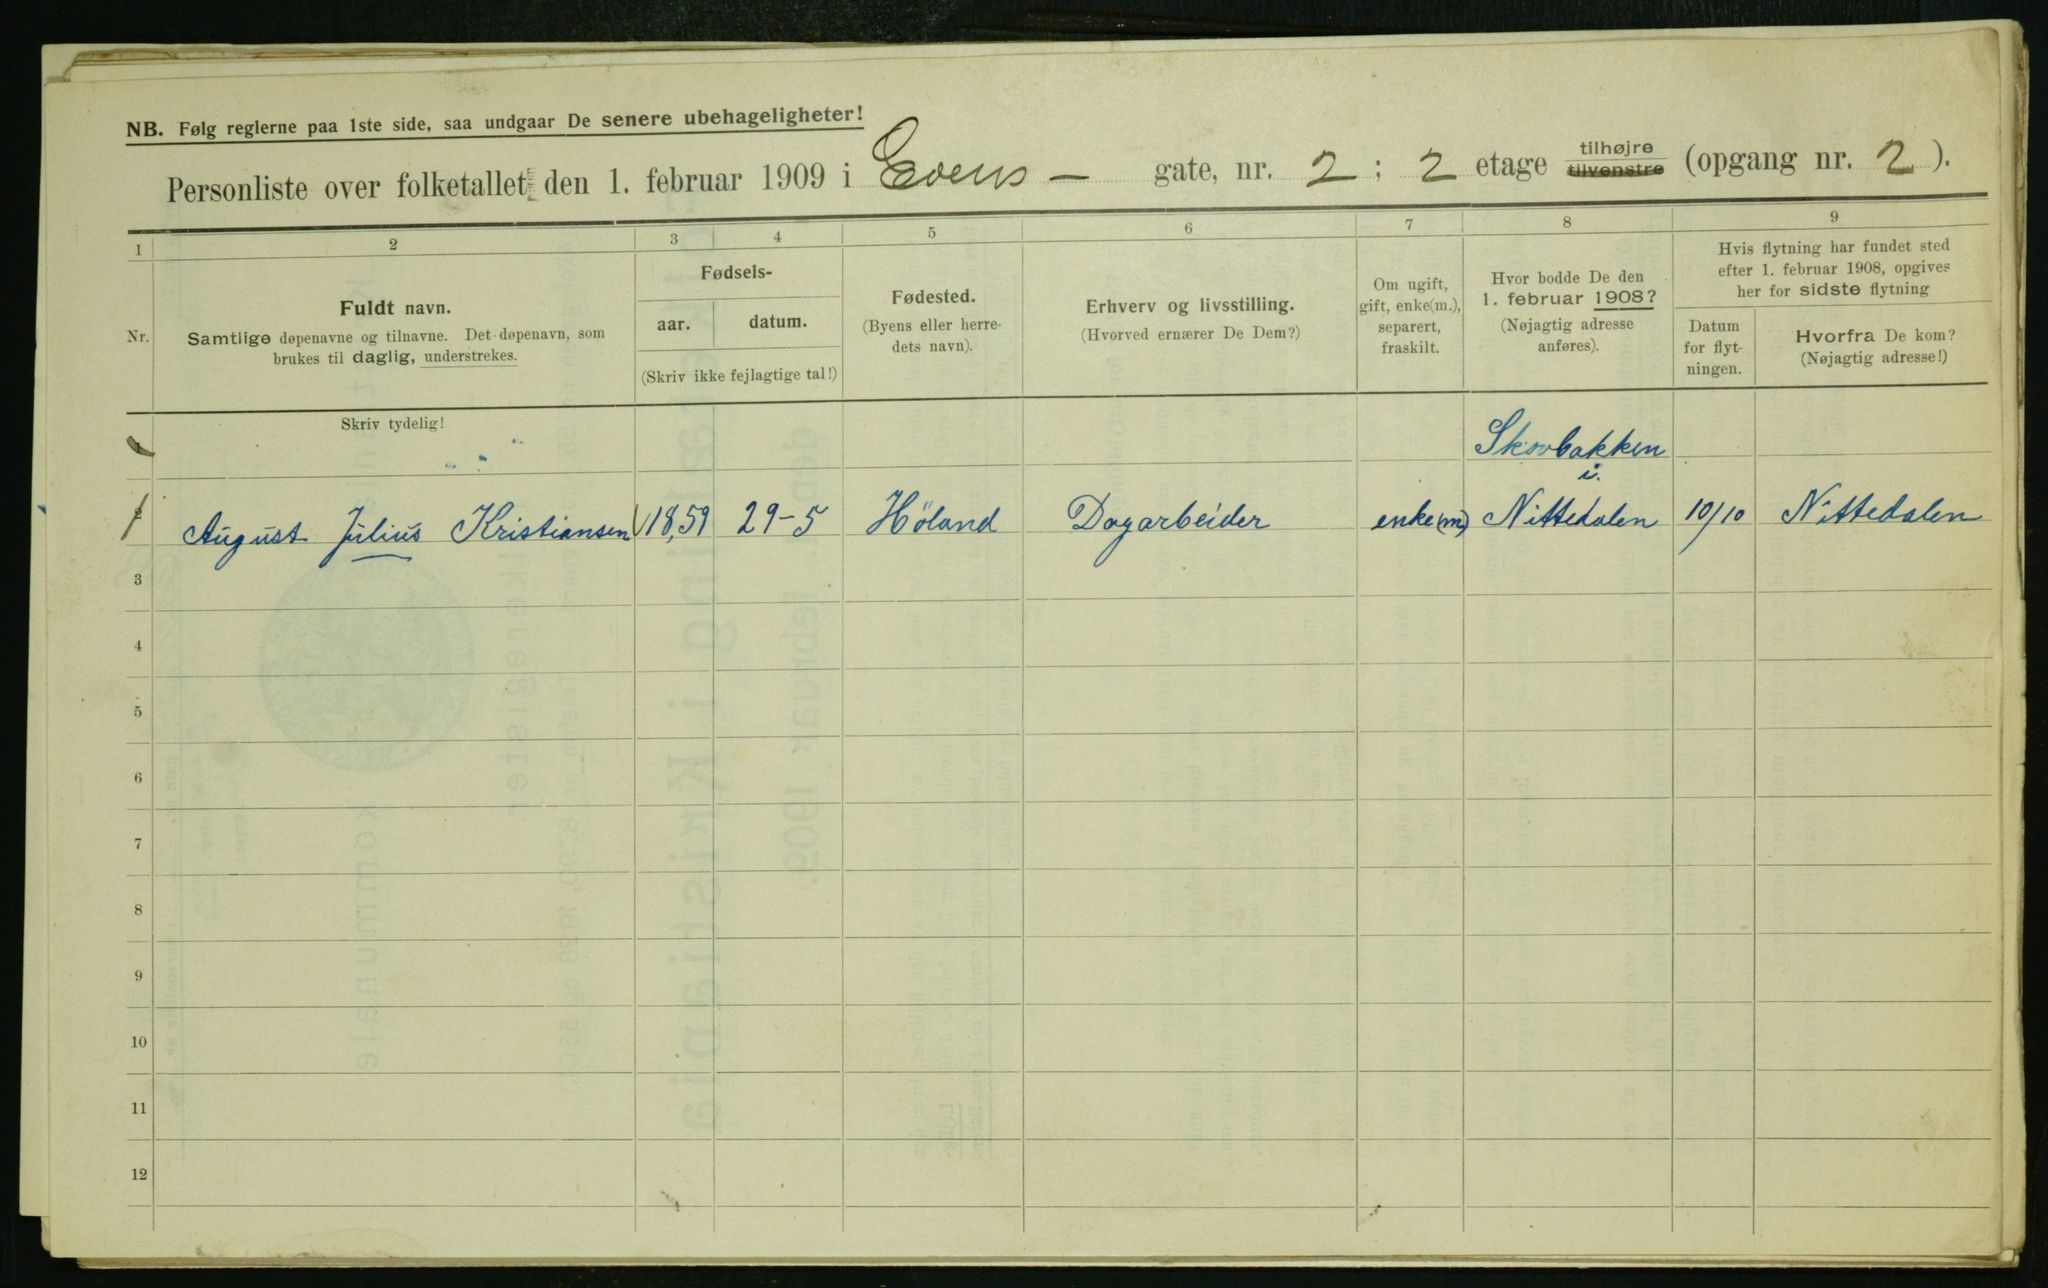 NB. Følg reglerne paa 1ste side, saa undgaar De senere ubehageligheter!
Personliste over folketallet den 1. februar 1909 i Evens – gate, nr. 2 ; 2 etage tilhøjre tilvenstre (opgang nr. 2 ).
1 2 3 4 5 6 7 8 9
Nr.
Fuldt navn.
Samtlige døpenavne og tilnavne. Det døpenavn, som
brukes til daglig, understrekes.
Fødsels-
aar. datum.
(Skriv ikke fejlagtige tal!)
Fødested.
(Byens eller herre-
dets navn).
Erhverv og livsstilling.
(Hvorved ernærer De Dem?)
Om ugift,
gift, enke(m.),
separert,
fraskilt.
Hvor bodde De den
1. februar 1908?
(Nøjagtig adresse
anføres).
Hvis flytning har fundet sted
efter 1. februar 1908, opgives
her for sidste flytning
Datum
for flyt-
ningen.
Hvorfra De kom?
(Nøjagtig adresse!)
Skriv tydelig!
Skovbakken
i.
August Julius Kristiansen 18,59 29-5 Höland Dagarbeider enke(m) Nittedalen 10/10 Nittedalen
3
4
5
6
7
8
9
10
11
12